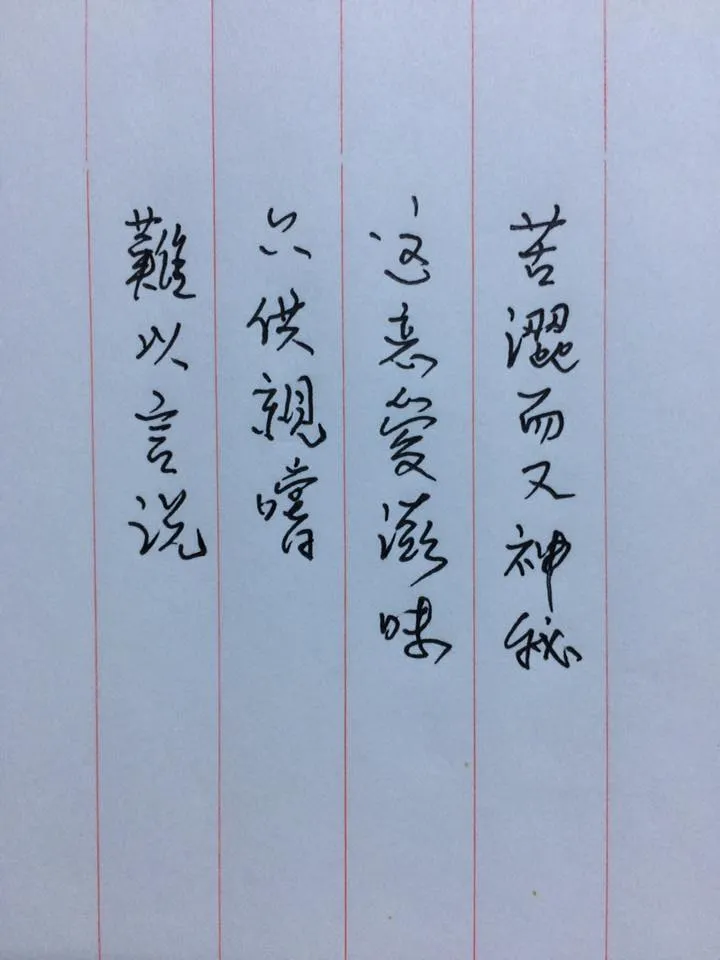 苦澀而又神秘
这恋愛滋味
只供親嚐
難以言说